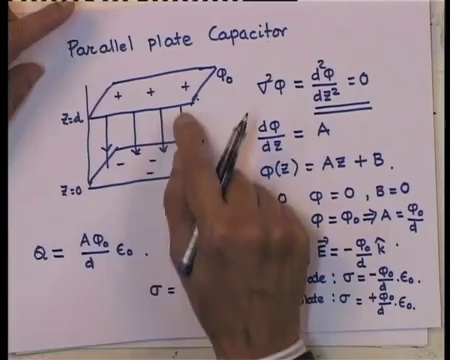 Parallel plate Capacitor
+ + + Φ₀
Z=d
- -
-
Z=0
∇²Φ = d²Φ/dz² = 0
dΦ/dz = A
Φ(z) = Az + B.
0 Φ=0, B=0
Φ=Φ₀ ⇒ A = Φ₀/d
E⃗ = -Φ₀/d k̂.
: σ = -Φ₀/d.ε₀
: σ = +Φ₀/d.ε₀
Q = AΦ₀/d ε₀.
σ =